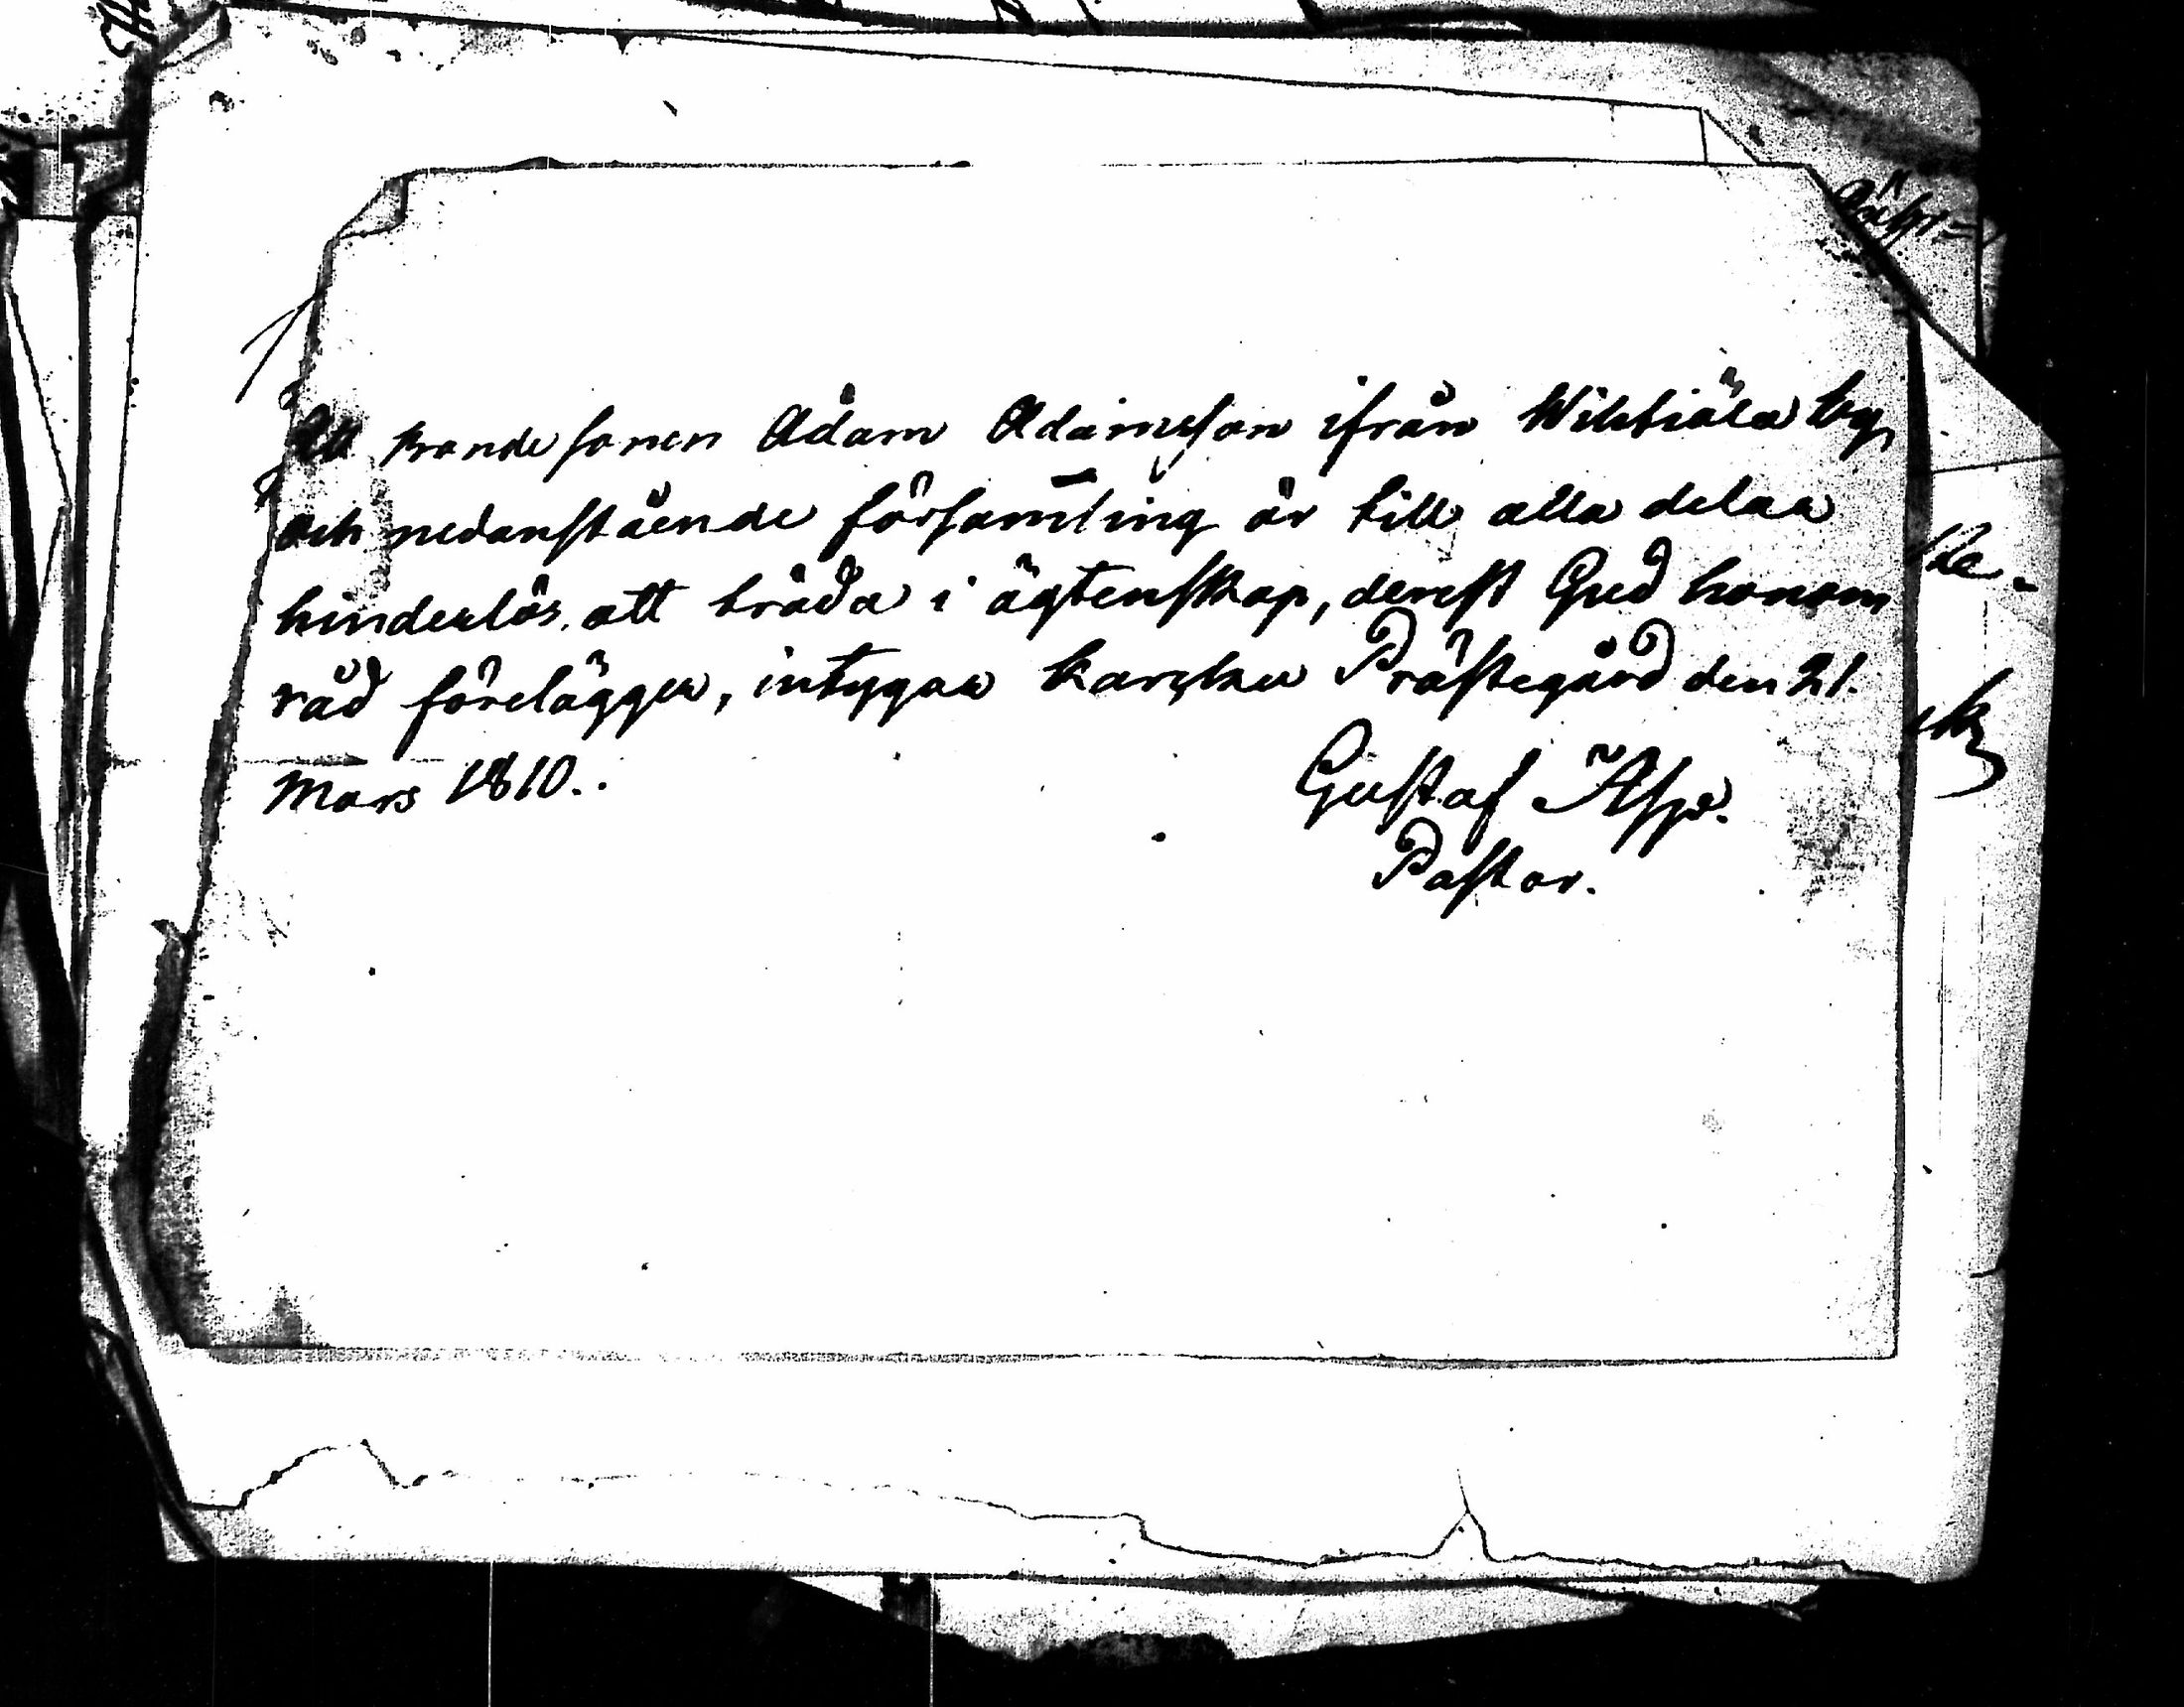 Att bondesonen Adam Adamsson ifrån Wiktiäla by
och nedanstående församling är till alla delar
hinderlös att träda i ägtenskap, derest Gud honom
råd förelägger, intygar Karsku Prästegård den 21.
Mars 1810..
Gustaf Asp.
Pastor.